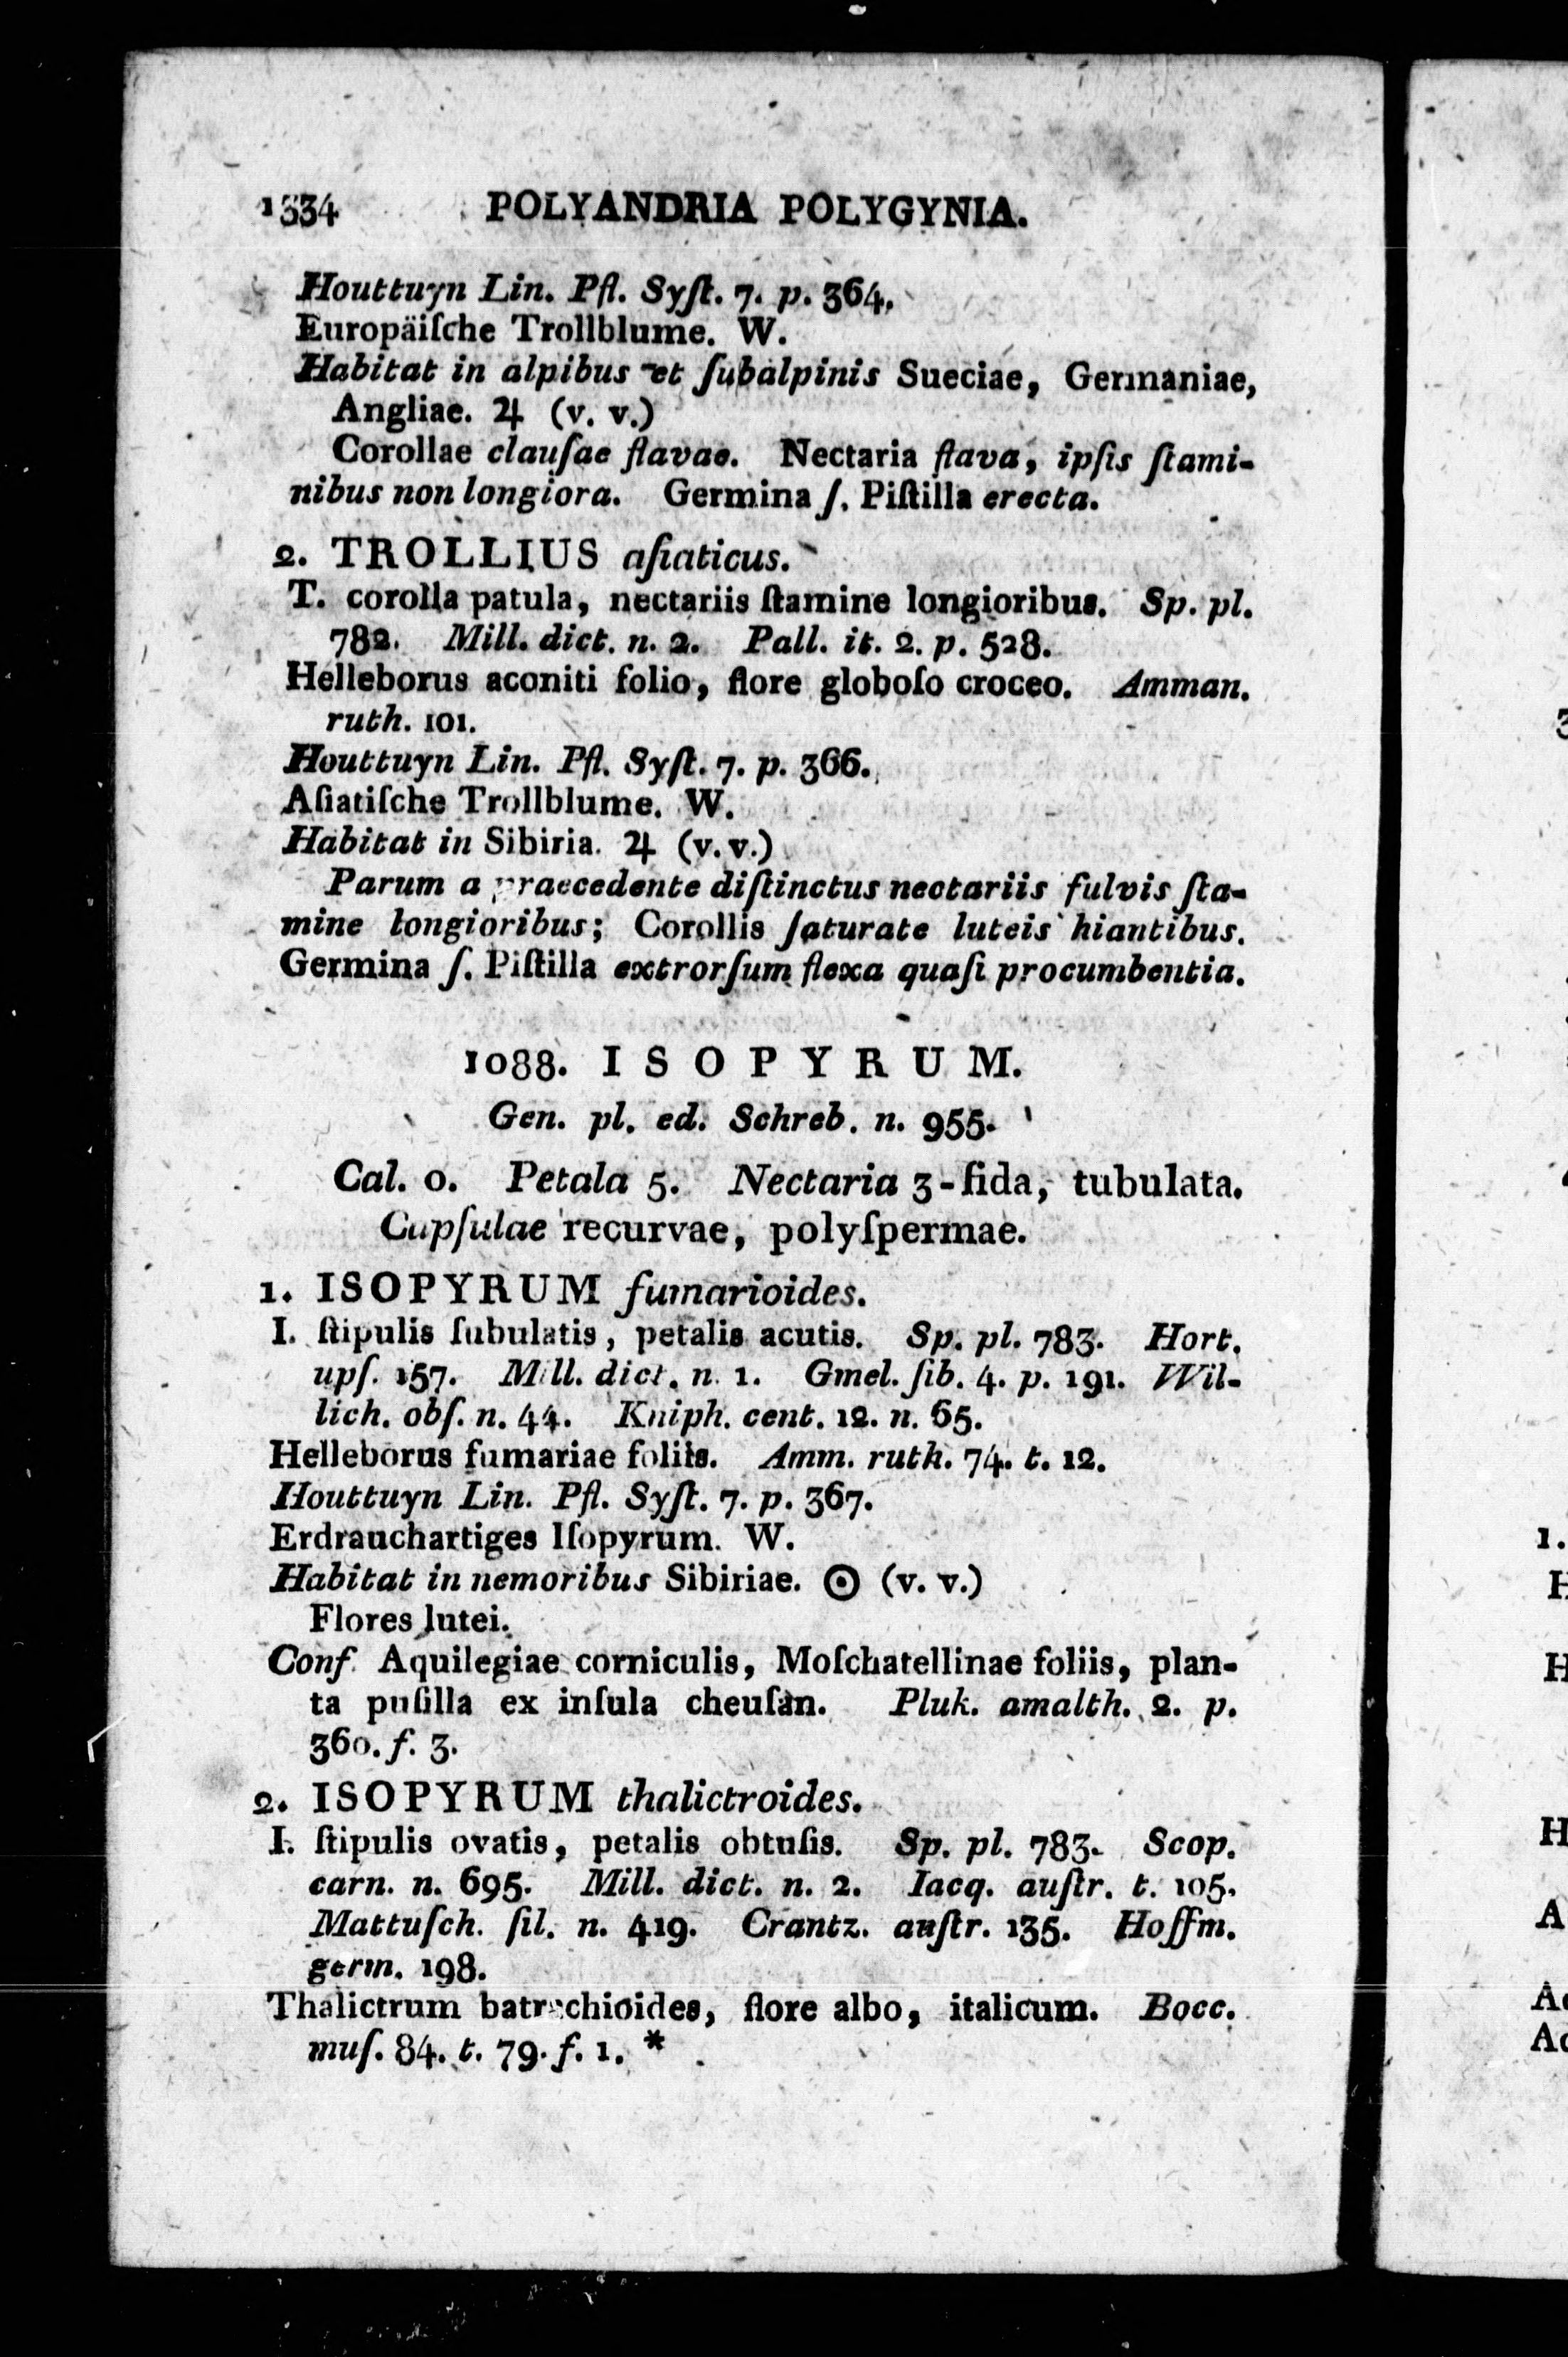 1334 POLYANDRIA POLYGYNIA.
Houttuyn Lin. Pfl. Syſt. 7. p. 364.
Europäiſche Trollblume. W.
Habitat in alpibus et ſubalpinis Sueciae, Germaniae,
Angliae. ♃ (v. v.)
Corollae clauſae flavae. Nectaria flava, ipſis ſtami-
nibus non longiora. Germina ſ. Piſtilla erecta.
2. TROLLIUS aſiaticus.
T. corolla patula, nectariis ſtamine longioribus. Sp. pl.
782. Mill. dict. n. 2. Pall. it. 2. p. 528.
Helleborus aconiti folio, flore globoſo croceo. Amman.
ruth. 101.
Houttuyn Lin. Pfl. Syſt. 7. p. 366.
Aſiatiſche Trollblume. W.
Habitat in Sibiria. ♃ (v. v.)
Parum a praecedente diſtinctus nectariis fulvis ſta-
mine longioribus; Corollis ſaturate luteis hiantibus.
Germina ſ. Piſtilla extrorſum flexa quaſi procumbentia.
1088. ISOPYRUM.
Gen. pl. ed. Schreb. n. 955.
Cal. 0. Petala 5. Nectaria 3-fida, tubulata.
Capſulae recurvae, polyſpermae.
1. ISOPYRUM fumarioides.
I. ſtipulis ſubulatis, petalis acutis. Sp. pl. 783. Hort.
upſ. 157. Mill. dict. n. 1. Gmel. ſib. 4. p. 191. Wil-
lich. obſ. n. 44. Kniph. cent. 12. n. 65.
Helleborus fumariae foliis. Amm. ruth. 74. t. 12.
Houttuyn Lin. Pfl. Syſt. 7. p. 367.
Erdrauchartiges Iſopyrum. W.
Habitat in nemoribus Sibiriae. ☉ (v. v.)
Flores lutei.
Conf. Aquilegiae corniculis, Moſchatellinae foliis, plan-
ta puſilla ex inſula cheuſan. Pluk. amalth. 2. p.
360. f. 3.
2. ISOPYRUM thalictroides.
I. ſtipulis ovatis, petalis obtuſis. Sp. pl. 783. Scop.
carn. n. 695. Mill. dict. n. 2. Iacq. auſtr. t. 105.
Mattuſch. ſil. n. 419. Crantz. auſtr. 135. Hoffm.
germ. 198.
Thalictrum batrachioides, flore albo, italicum. Bocc.
muſ. 84. t. 79. f. 1. *